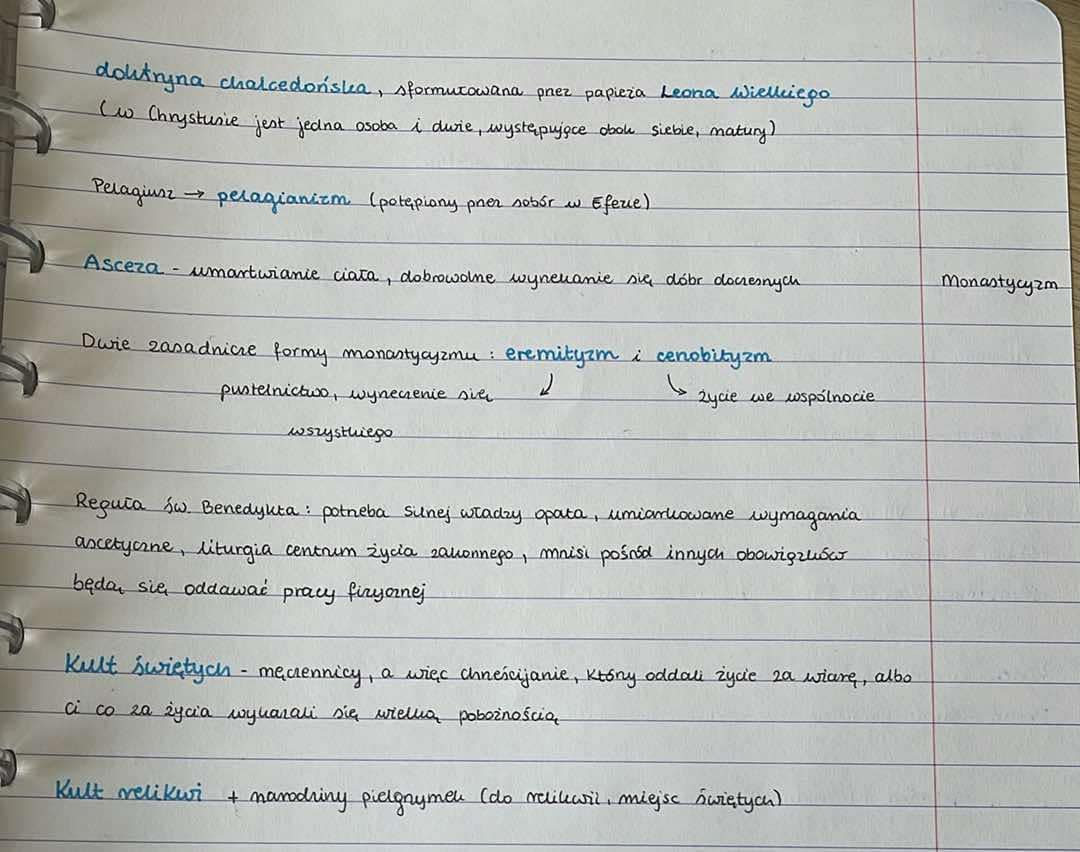 doktryna chalcedońska, sformułowana przez papieża Leona Wielkiego
(w Chrystusie jest jedna osoba i dwie, występujące obok siebie, natury)
Pelagiusz → pelagianizm (potępiony przez sobór w Efezie)
Asceza - umartwianie ciała, dobrowolne wyrzekanie się dóbr doczesnych
Monastycyzm
Dwie zasadnicze formy monastycyzmu: eremityzm i cenobityzm
pustelnictwo, wyrzeczenie się ↙ ↘ życie we wspólnocie
wszystkiego
Reguła św. Benedykta: potrzeba silnej władzy opata, umiarkowane wymagania
ascetyczne, liturgia centrum życia zakonnego, mnisi pośród innych obowiązków
będą się oddawać pracy fizycznej
Kult świętych - męczennicy, a więc chrześcijanie, którzy oddali życie za wiarę, albo
ci co za życia wykazali się wielką pobożnością
Kult relikwi + narodziny pielgrzymek (do relikwii, miejsc świętych)